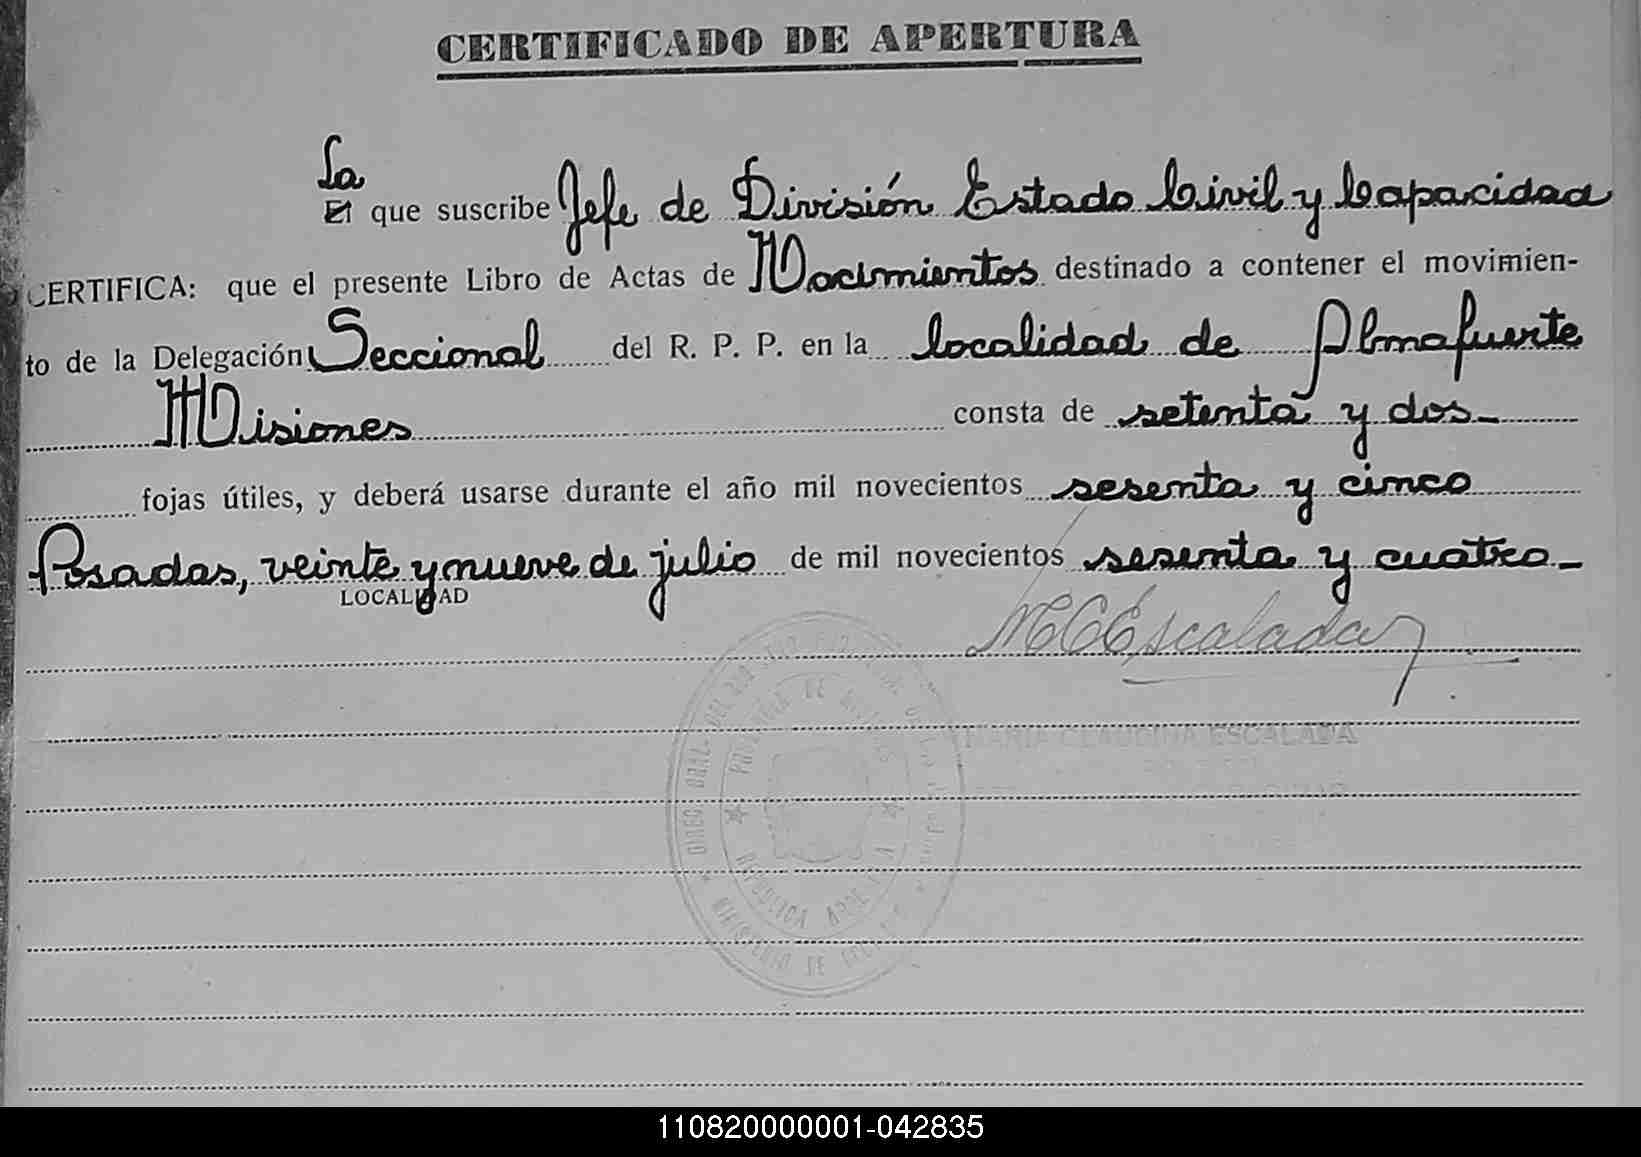 CERTIFICADO DE APERTURA
La
El que suscribe Jefe de División Estado Civil y Capacidad
CERTIFICA: que el presente Libro de Actas de Nacimientos destinado a contener el movimien-
to de la Delegación Seccional del R. P. P. en la localidad de Almafuerte
Misiones consta de setenta y dos
fojas útiles, y deberá usarse durante el año mil novecientos sesenta y cinco
Posadas, veinte y nueve de julio de mil novecientos sesenta y cuatro
LOCALIDAD
MCEscalada
MARIA CLAUDINA ESCALADA
PROVINCIA DE MISIONES
REPUBLICA ARGENTINA
MINISTERIO DE
110820000001-042835